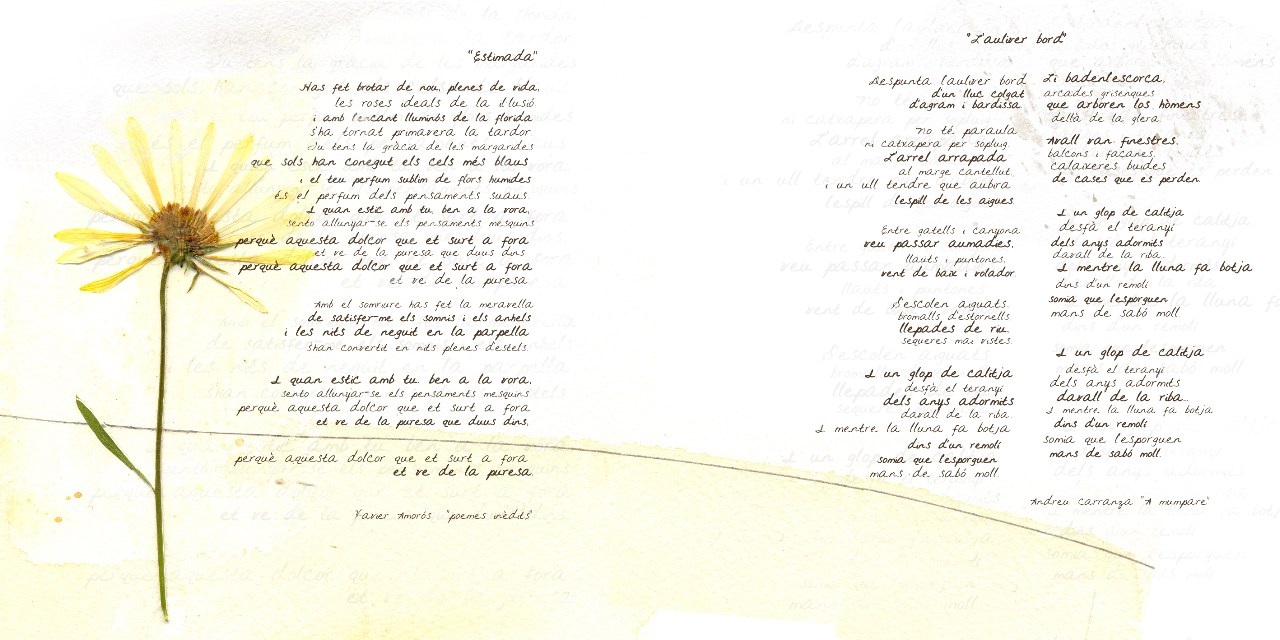 "Estimada"
Has fet brotar de nou, plenes de vida,
les roses ideals de la il·lusió.
i amb l'encant lluminós de la florida
s'ha tornat primavera la tardor.
Tu tens la gràcia de les margarides
que sols han conegut els cels més blaus
i el teu perfum sublim de flors humides
és el perfum dels pensaments suaus.
I quan estic amb tu, ben a la vora,
sento allunyar-se els pensaments mesquins
perquè aquesta dolçor que et surt a fora
et ve de la puresa que duus dins.
perquè aquesta dolçor que et surt a fora
et ve de la puresa.
Amb el somriure has fet la meravella
de satisfer-me els somnis i els anhels
i les nits de neguit en la parpella
s'han convertit en nits plenes d'estels.
I quan estic amb tu, ben a la vora,
sento allunyar-se els pensaments mesquins
perquè aquesta dolçor que et surt a fora
et ve de la puresa que duus dins,
perquè aquesta dolçor que et surt a fora
et ve de la puresa.
Xavier Amorós "poemes inèdits"
"L'auliver bord"
Despunta l'auliver bord
d'un lluc colgat
d'agram i bardissa.
no té paraula
ni catxapera per sopluig.
L'arrel arrapada
al marge cantellut,
i un ull tendre que aubira
l'espill de les aigues.
Entre gatells i canyona
veu passar aumadies,
llauts i puntones,
vent de baix i volador.
S'escolen aiguats.
bromalls d'estornells.
llepades de riu,
sequeres mai vistes.
I un glop de calitja
desfà el teranyí
dels anys adormits
davall de la riba...
I mentre la lluna fa botja
dins d'un remolí
somia que l'esporguen
mans de sabó moll.
Li badenlescorca,
arcades grisenques
que arboren los hòmens
dellà de la glera.
Avall van finestres,
balcons i façanes,
calaixeres buides
de cases que es perden.
I un glop de calitja
desfà el teranyí
dels anys adormits
davall de la riba...
I mentre la lluna fa botja
dins d'un remolí
somia que l'esporguen
mans de sabó moll.
I un glop de calitja
desfà el teranyí
dels anys adormits
davall de la riba...
I mentre la lluna fa botja
dins d'un remolí
somia que l'esporguen
mans de sabó moll.
Andreu Carranza "A mumpare"